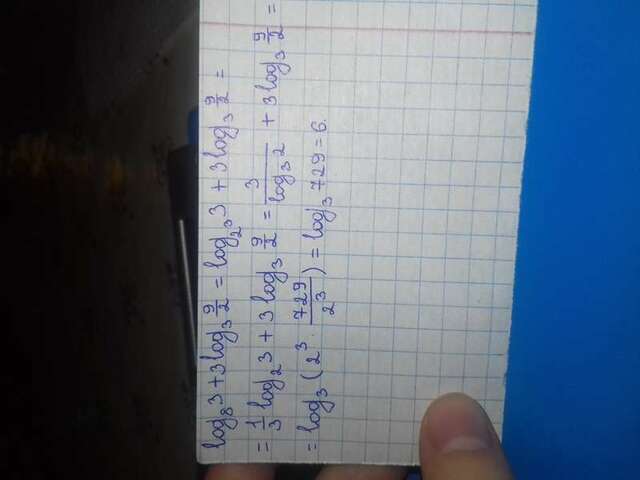 log₈3 + 3log₃ 9/2 = log₂³3 + 3log₃ 9/2 =
= 1/3 log₂3 + 3log₃ 9/2 = 3/log₃2 + 3log₃ 9/2 =
= log₃(2³ · 729/2³) = log₃729 = 6.